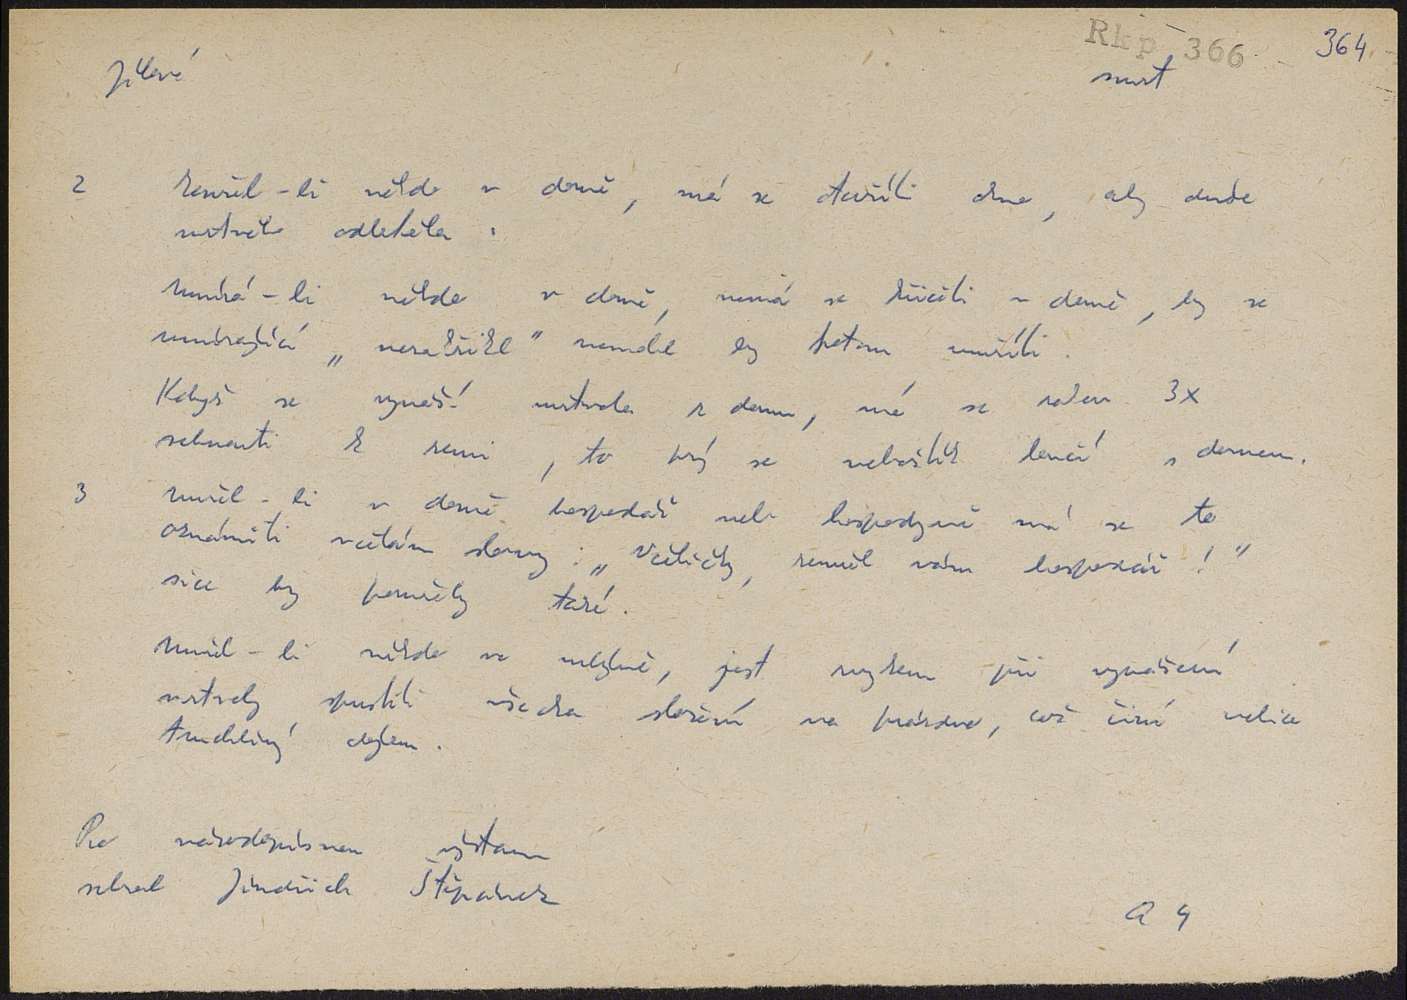 Rkp 366 364
Jílové smrt
2 Zemřel-li někdo v domě, má se otevříti okno, aby duše
mrtvého odletěla.
Umírá-li někdo v domě, nemá se křičeti v domě, by se
umírající "nezakřikl" nemohl by potom umříti.
Když se vynáší mrtvola z domu, má se rakev 3x
sehnouti k zemi, to prý se nebožtík loučí s domem.
3 Umřel-li v domě hospodář nebo hospodyně má se to
oznámiti včelám slovy: "Včeličky, zemřel vám hospodář!"
sice by pomřely také.
Umřel-li někdo ve mlýně, jest zvykem při vynášení
mrtvoly spustiti všecka složení na prázdno, což činí velice
truchlivý dojem.
Pro národopisnou výstavu
sebral Jindřich Štěpánek
A 4